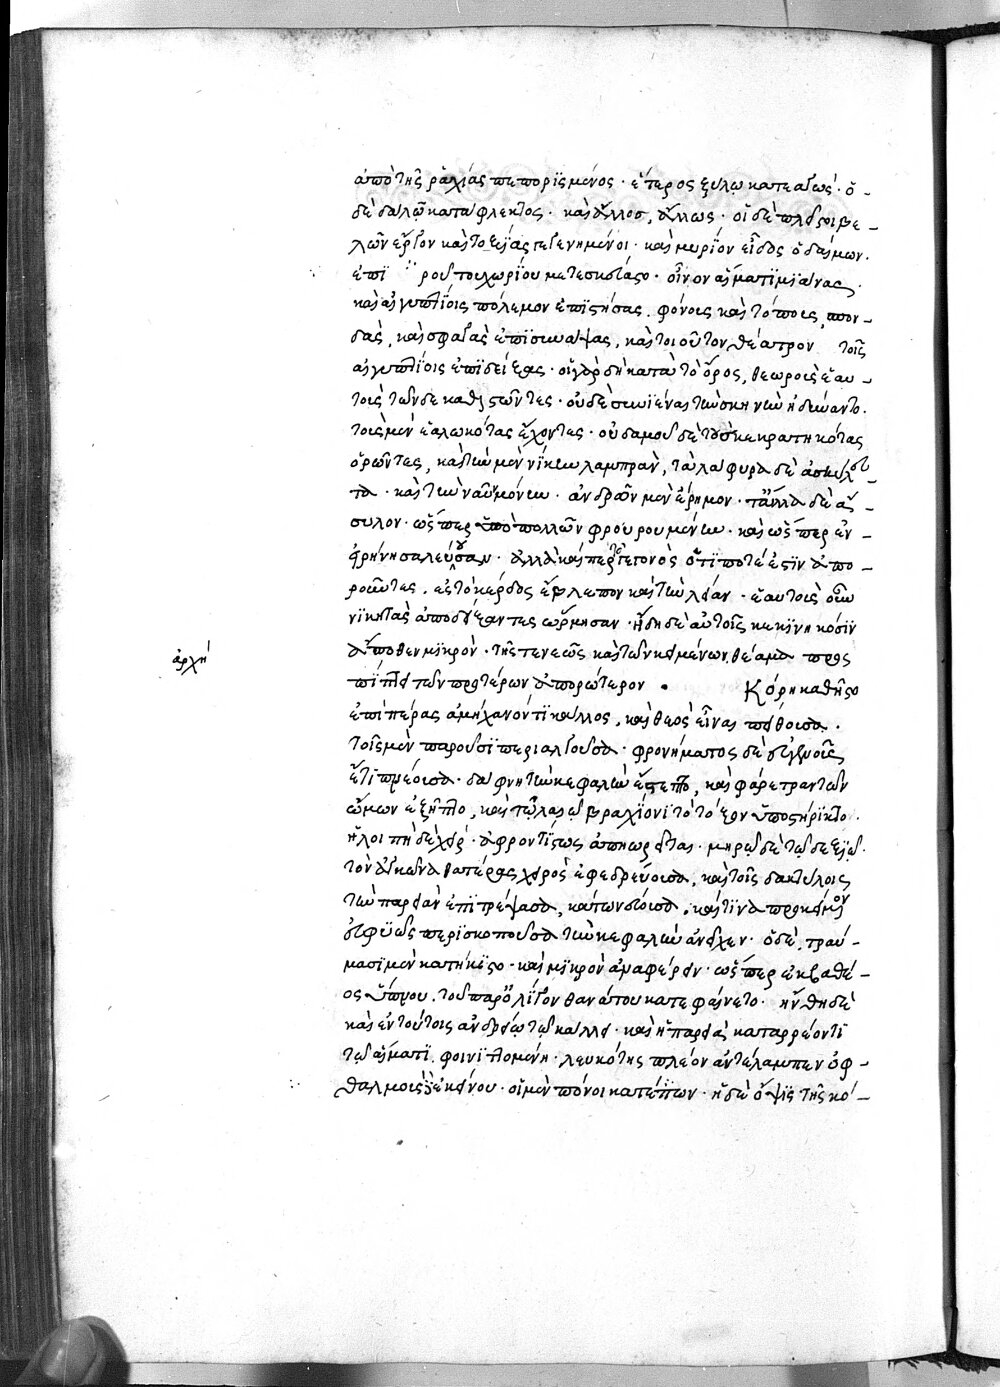 ἀπὸ τῆς ῥαχίας πεπορϊσμένος · ἕτερος ξύλω κατεαγώς · ὁ
δὲ δαλῶ κατάφλεκτος · καὶ ἄλλοσ, ἄλλως · οἱ δὲ πλεῖστοι βε
λῶν ἔργον καὶ τοξείας γεγενημένοι · καὶ μυρίον εἶδος ὁ δαίμων ·
ἐπϊ ροῦ τοῦ χωρίου διεσκεύαστο · οἶνον αἵματϊ μϊάνας ·
καὶ συμποσίοις πόλεμον ἐπϊστήσας · φόνους καὶ πότους, σπον
δάς, καὶ σφαγὰς ἐπϊσυνάψας, καὶ τοιοῦτον θέατρον τοῖς
αἰγυπτίοις ἐπϊδείξας · οἱ γὰρ δὴ κατὰ τὸ ὄρος, θεωροὺς ἑαυ
τοὺς τῶνδε καθίσαντες · οὐδὲ συνϊέναι τὴν σκηνὴν ἠδύναντο ·
τοὺς μὲν ἑαλωκότας ἔχοντες · οὐδαμοῦ δὲ τοὺς κεκρατηκότας
ὁρῶντες, καὶ τὴν μὲν νίκην λαμπρὰν, τὰ λάφυρα δὲ ἀσκύλευ
τα · καὶ τὴν ναῦν μόνην · ἀνδρῶν μὲν ἔρημον · τἆλλα δὲ ἄ
συλον · ὥσπερ ὑπὸ πολλῶν φρουρουμένην · καὶ ὥσπερ ἐν
εἰρήνη σαλεύουσαν · ἀλλὰ καίπερ τὸ γεγονὸς ὅ τϊ ποτέ ἐστϊν ἀπο
ροῦντες · εἰς τὸ κέρδος ἔβλεπον καὶ τὴν λείαν · ἑαυτοὺς οὖν
νϊκητὰς ἀποδείξαντες ὥρμησαν · ἤδη δὲ αὐτοῖς κεκϊνηκόσϊν
ἄποθεν μϊκρὸν · τῆς τε νεὼς καὶ τῶν κειμένων, θέαμα προσ
πίπτει τῶν προτέρων ἀπορώτερον · Κόρη καθῆστο
ἀρχή
ἐπὶ πέτρας ἀμήχανόν τϊ κάλλος, καὶ θεὸς εἶναι πείθουσα ·
τοῖς μὲν παροῦσϊ περιαλγοῦσα · φρονήματος δὲ εὐγενοῦς
ἔτϊ πνέουσα · δάφνη τὴν κεφαλὴν ἔστεπτο, καὶ φαρέτραν τῶν
ὤμων ἐξῆπτο, καὶ τῶ λαιῶ βραχίονϊ τὸ τόξον ὑπεστήρϊκτο ·
ἡ λοιπὴ δὲ χεὶρ · ἀφροντίστως ἀπῃώρητο · μηρῷ δὲ τῷ δεξϊῷ
τὸν ἀγκῶνα θατέρας χειρὸς ἐφεδρεύουσα, καὶ τοῖς δακτύλοις
τὴν παρειὰν ἐπϊτρέψασα, κάτω νεύουσα · καί τϊνα προκείμενον
ἔφηβον περϊσκοποῦσα τὴν κεφαλὴν ἀνεῖχεν · ὁ δὲ, τραύ
μασϊ μὲν κατῄκϊστο · καὶ μϊκρὸν ἀναφέρειν · ὥσπερ ἐκ βαθέ
ος ὕπνου · τοῦ παρ' ὀλίγον θανάτου κατεφαίνετο · ἤνθει δὲ
καὶ ἐν τούτοις ἀνδρείῳ τῷ κάλλει · καὶ ἡ παρειὰ καταρρέοντϊ
τῷ αἵματϊ φοινϊττομένη · λευκότητι πλέον ἀντέλαμπεν ὀφ
θαλμοὺς δὲ ἐκείνου · οἱ μὲν πόνοι κατέσπων · ἡ δὲ ὄψϊς τῆς κό